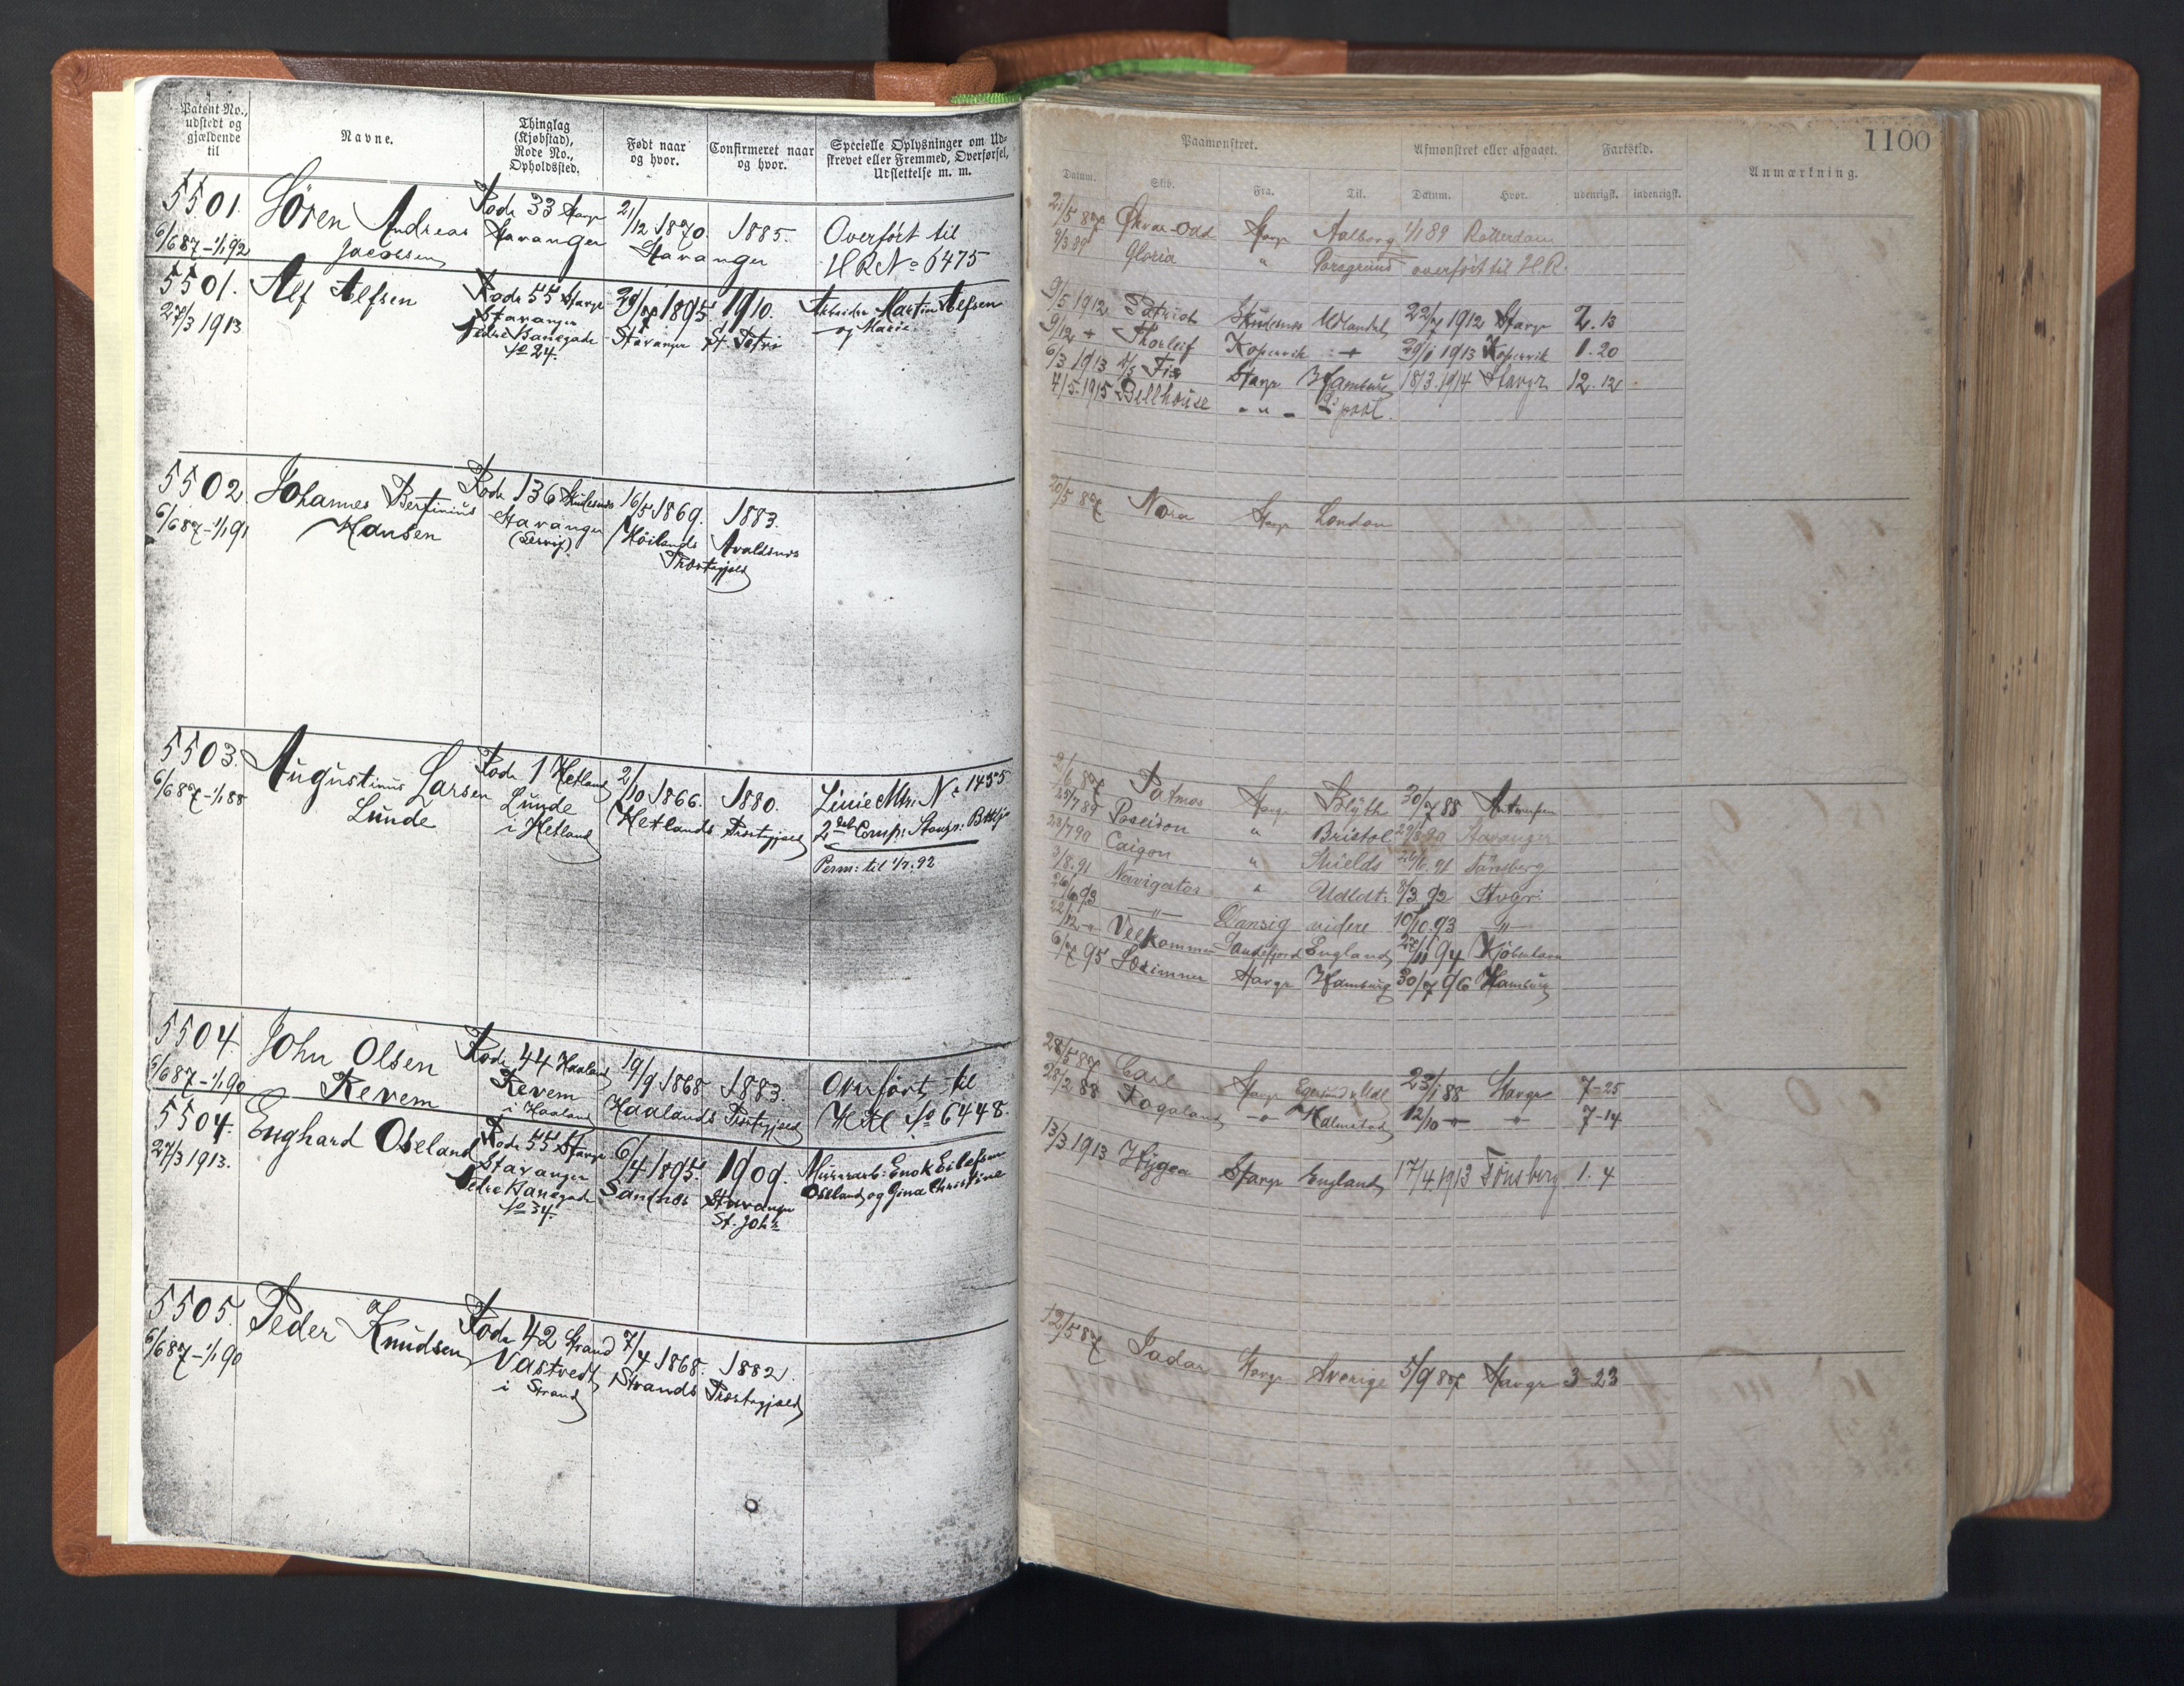 Patent No., udstedt og gjældende til
Navne.
Thinglag (Kjøbstad), Rode No., Opholdssted.
Født naar og hvor.
Confirmeret naar og hvor.
Specielle Oplysninger om Udskrevet eller Fremmed, Overførsel, Udslettelse m. m.
5501.
6/6 87 - 1/1 92
Sören Andreas
Jacobsen
Rode 33 Stavgr
Stavanger
21/12 1870.
Stavanger
1885.
Overført til
H R No 6475
5501.
27/3 1913
Alf Alfsen
Rode 55 Stavgr
Stavanger
Pedre Banegade
No 24.
1895
Stavanger
1910.
St. Petri
Arbeider Martin Alfsen
og Marie
5502.
6/6 87 - 1/1 91
Johannes Bertinius
Hansen
Rode 136 Skudesnæs
Stavanger
16/5 1869.
Höilands
Præstegjeld
1883.
Avaldsnes
5503.
6/6 87 - 1/1 88
Augustinus Larsen
Lunde
Rode 1 Hetland
Lunde
i Hetland
2/10 1866.
Hetlands Præstegjeld
1880.
Linie Mtr: No 1435
2den Comp: Stavgr: Bttlj:
Perm: til 1/7. 92
5504.
6/6 87 - 1/1 90
John Olsen
Revem
Rode 44 Haaland
Revem
i Haaland
19/9 1868
Haalands Præstegjeld
1883.
Overført til
H R No 6448.
5504.
27/3 1913.
Enghard Oseland
Rode 55 Stavgr
Stavanger
Pedre Banegade
No 34.
6/4 1895.
Sandnes
1909.
Stavanger
St. Joh:
Murerarb: Enok Eilefsen
Oseland og Gina Christine
5505.
6/6 87 - 1/1 90
Peder Knudsen
Rode 42 Strand
Vastvedt
i Strand
7/4 1868.
Strands Præstegjeld
1882.
1100
Paamønstret.
Afmønstret eller afgaaet.
Fartstid.
Anmærkning.
Datum.
Skib.
Fra.
Til.
Datum.
Hvor.
udenrigsk.
indenrigsk.
21/5 87 Ørvar-Odd Stavgr Aalborg 1/1 89 Rotterdam
9/3 89 Gloria " Porsgrund overført til H.R.
9/5 1912 Patriot Skudesnes Udlandet 22/7 1912 Stavgr 2. 13
9/12 Thorleif Kopervik 29/1 1913 Kopervik 1. 20
6/3 1913 Fix Stavgr Hamburg 18/3. 1914 Stavgr 12. 12
4/5. 1915 Bellhouse - " - L'pool.
20/5 87 Nora Stavgr London
2/6 87 Patmos Stavgr Blyth 30/7 88 Antwerpen
25/7 89 Poseidon " Bristol Stavanger
23/7 90 Caigon " Shields 91 Tönsberg
3/8. 91 Navigator " Udldt: 8/3 92 Stvgr:
93 — " — Danzig videre 10/10. 93 — " —
22/12 Velkommen Sandefjord England 94 Kjöbenhavn
6/7 95 Sörimner Stavgr Hamburg 30/7 96 Hamburg
28/5 87 Carl Stavgr Egersund & Udl 23/1 88 Stavgr 7-25
28/2 88 Rogaland Halmstad 12/10 7-14
13/3 1913 Hygea Stavgr England 17/4. 1913 Tönsberg 1. 4
12/5 87 Jadar Stavgr Sverige 5/9 87 Stavgr 3-23